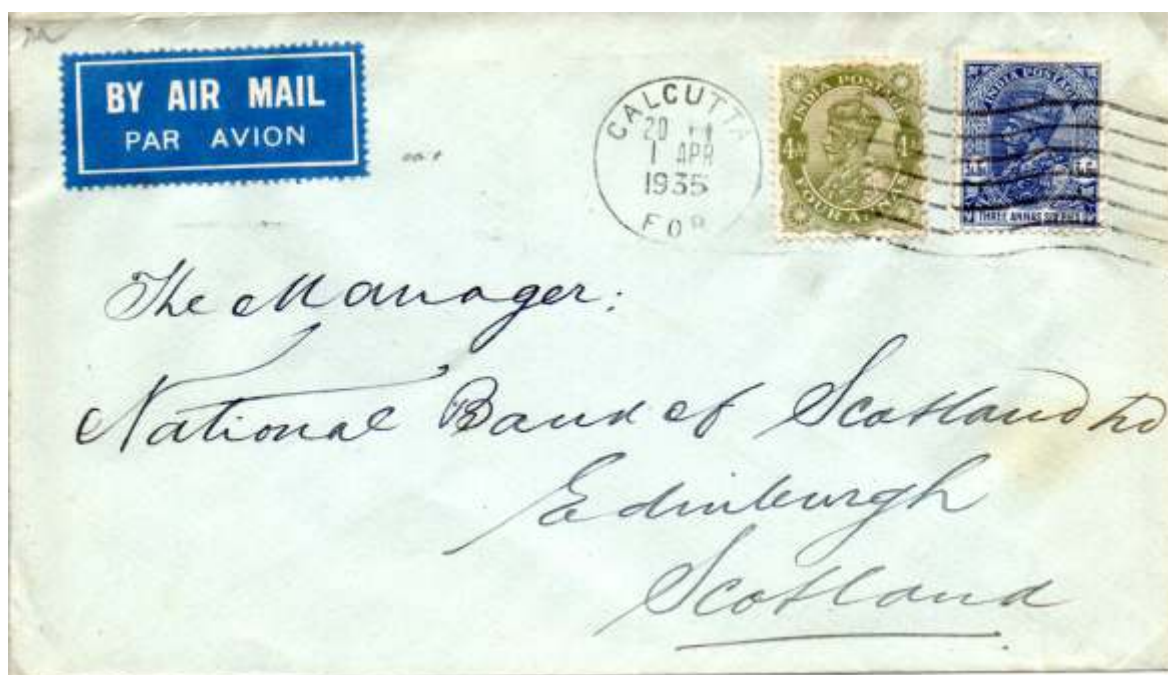 BY AIR MAIL
PAR AVION
CALCUTTA
1 APR
1935
INDIA POSTAGE
4A 4A
FOUR ANNAS
INDIA POSTAGE
THREE ANNAS SIX PIES
The Manager:
National Bank of Scotland Ltd
Edinburgh
Scotland